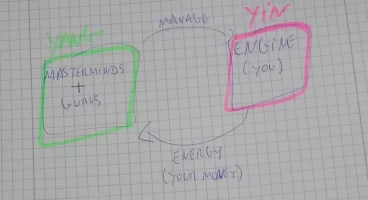 YANG
MANAGE
YIN
MASTERMINDS
+
GURUS
ENGINE
(YOU)
ENERGY
(YOUR MONEY)